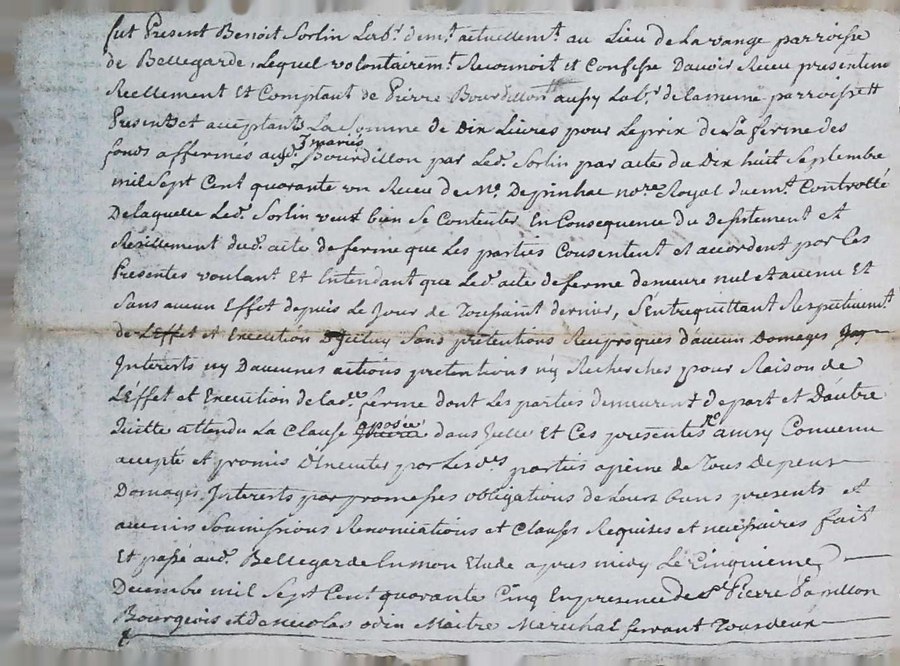 fut Present Benoit Sorlin Labr. demt. actuellemt. au Lieu de La vange parroisse
de Bellegarde, Lequel volontairemt. Reconnoit et Confesse D'avoir Receu presentemt
Reellement Et Comptant de Pierre Bourdillon aussy Labr. de la meme parroisse
Present et acceptant La Somme de Dix Livres pour Le prix de La ferme des
fonds affermés aud. Bourdillon par Led. Sorlin par acte du Dix huit Septembre
mil Sept Cent quarante un Receu de Me. Depinhac nore. Royal duemt. Controllé
De laquelle Led. Sorlin veut bien Se Contenter En Consequence du Desistement et
Resillement dud. acte de ferme que Les parties Consentent et accordent par Ces
Presentes voulant Et Entendant que Led. acte de ferme demeure nul et avenu Et
Sans aucun Effet depuis Le Jour de Toussaint dernier, S'entrequittant Respectivemt.
de L'Effet et Execution D'Jceluy Sans pretentions Reciproques d'aucun Domages
Interests ny D'aucunes actions pretentions ny Recherches pour Raison de
L'Effet et Execution de lade. ferme dont Les parties demeurent d'epart et D'autre
Quitte attendu La Clause aposée dans Jcelle Et Ces presentes ainsy Convenu
accepté et promis D'Executer par Les des. parties apeine de Tous Depens
Domages Interests par promesses obligations de Leurs biens presents et
avenirs Soumissions Renonciations et Clauses Requises et necessaires fait
Et passé aud. Bellegarde En mon Etude apres midy Le Cinquieme
Decembre mil Sept Cent quarante Cinq En presence de Sr. Pierre Papillon
Bourgeois et de nicolas odin Maitre Marechal ferrant Tous deux